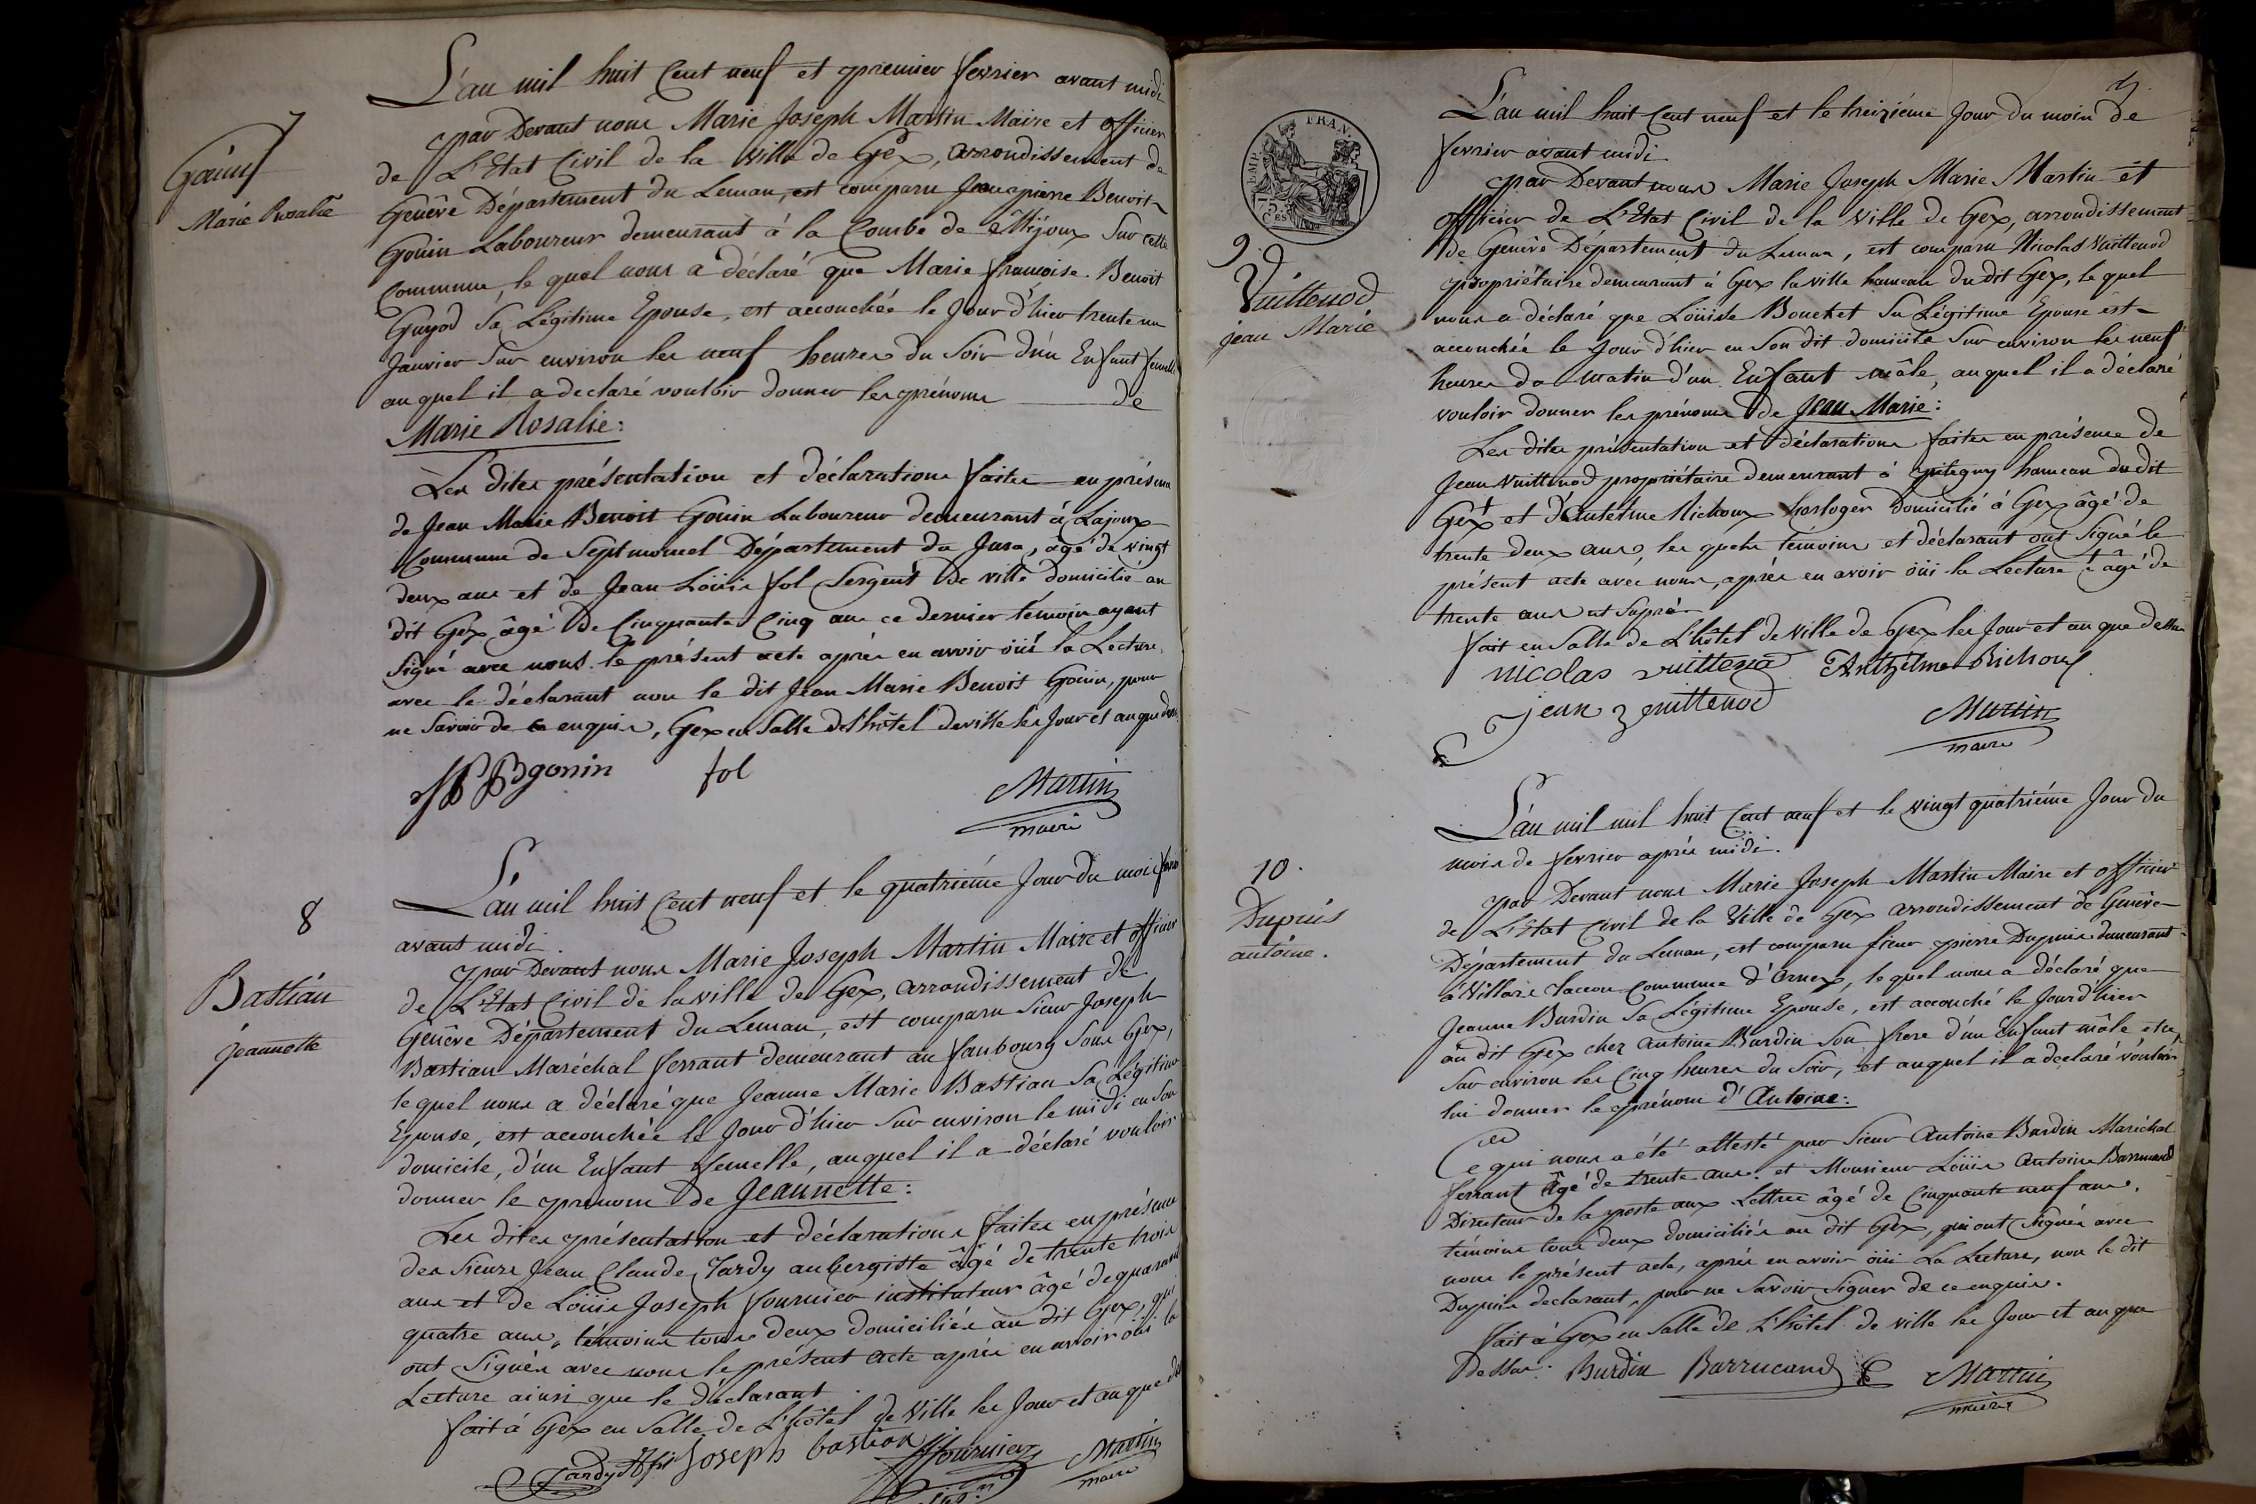 7
Gouin
Marie Rosalie
L'an mil huit Cent neuf et premier fevrier avant midi
par Devant nous Marie Joseph Martin Maire et officier
de L'Etat Civil de la Ville de Gex, arrondissement de
Genêve Département du Leman, est comparu Jean pierre Benoit
Gouin Laboureur demeurant à la Combe de Mijoux Sur cette
Commune, le quel nous a déclaré que Marie françoise Benoit
Guyod Sa Légitime Epouse, est accouchée le Jour d'hier trente un
Janvier Sur environ les neuf heures du Soir d'un Enfant femelle
au quel il a declaré vouloir donner les prénoms de
Marie Rosalie:
Les dites présentation et déclarations faites en présence
de Jean Marie Benoit Gouin Laboureur demeurant à Lajoux
Commune de Septmoncel Département du Jura, âgé de vingt
deux ans et de Jean Loüis fol Sergent de ville domicilié au
dit Gex âgé de Cinquante Cinq ans ce dernier témoin ayant
Signé avec nous le présent acte après en avoir oüi la Lecture,
avec le déclarant non le dit Jean Marie Benoit Gouin, pour
ne Savoir de ce enquis, Gex en Salle de l'hôtel de ville les Jour et an que dessus
JPBgonin fol
Martin
maire
8
Bastian
Jeannette
L'an mil huit Cent neuf et le quatriéme Jour du mois fevrier
avant midi.
par Devant nous Marie Joseph Martin Maire et officier
de L'Etat Civil de la ville de Gex, arrondissement de
Genêve Département du Leman, est comparu Sieur Joseph
Bastian Maréchal ferrant demeurant au faubourg Sous Gex,
le quel nous a déclaré que Jeanne Marie Bastian Sa Légitime
Epouse, est accouchée le Jour d'hier Sur environ le midi en Son
domicile, d'un Enfant femelle, au quel il a déclaré vouloir
donner le prenom de Jeannette:
Les dites présentation et déclarations faites en présence
des Sieurs Jean Claude Tardy aubergiste âgé de trente trois
ans et de Loüis Joseph fournier instituteur âgé de quarante
quatre ans, témoins tous deux domiciliés au dit Gex, qui
ont Signés avec nous le présent acte après en avoir oüi la
Lecture ainsi que le déclarant.
fait à Gex en Salle de L'hôtel de Ville les Jour et an que des
Tardy Joseph bastian fournier Martin
maire
9.
9.
Vuittenod
jean Marie
L'an mil huit Cent neuf et le treiziéme Jour du mois de
fevrier avant midi
par Devant nous Marie Joseph Marie Martin et
officier de L'Etat Civil de la Ville de Gex, arrondissement
de Genêve Département du Leman, est comparu Nicolas Vuittenod
propriétaire demeurant à Gex la ville hameau du dit Gex, le quel
nous a déclaré que Loüise Bouchet Sa Légitime Epouse est
accouchée le Jour d'hier en Son dit domicile Sur environ les neuf
heures du matin d'un Enfant mâle, au quel il a déclaré
vouloir donner les prénoms de Jean Marie:
Les dites présentation et déclarations faites en présence de
Jean Vuittenod propriétaire demeurant à pitegny hameau du dit
Gex + et d'Antelme Richoux horloger domicilié à Gex âgé de
trente deux ans, les quels témoins et déclarant ont Signé le
présent acte avec nous, après en avoir oüi la Lecture + âgé de
trente ans
fait en Salle de L'hôtel de Ville de Gex les Jour et an que dessus
nicolas vuittenod Anthelme Richoux
jean vuittenod
Martin
maire
EMP. FRAN.
10.
Dupuis
antoine.
L'an mil mil huit Cent neuf et le vingt quatriéme Jour du
mois de fevrier après midi.
par Devant nous Marie Joseph Martin Maire et officier
de L'Etat Civil de la Ville de Gex arrondissement de Genêve
Département du Leman, est comparu Sieur pierre Dupuis demeurant
à Villard Tacon Commune d'Ornex, le quel nous a déclaré que
Jeanne Burdin Sa Légitime Epouse, est accouché le Jour d'hier
au dit Gex chez Antoine Burdin Son frere d'un Enfant mâle
Sur environ les Cinq heures du Soir, et auquel il a declaré vouloir
lui donner le prénom d'Antoine:
Ce qui nous a été attesté par Sieur Antoine Burdin Maréchal
ferrant âgé de trente ans et Monsieur Loüis Antoine Barrucand
Directeur de la poste aux Lettres âgé de Cinquante neuf ans,
témoins tous deux domiciliés au dit Gex, qui ont Signés avec
nous le présent acte, après en avoir oüi La Lecture, non le dit
Dupuis declarant, pour ne Savoir Signer de ce enquis.
fait à Gex en Salle de L'hôtel de ville les Jour et an que
Dessus. Burdin Barrucand Martin
maire